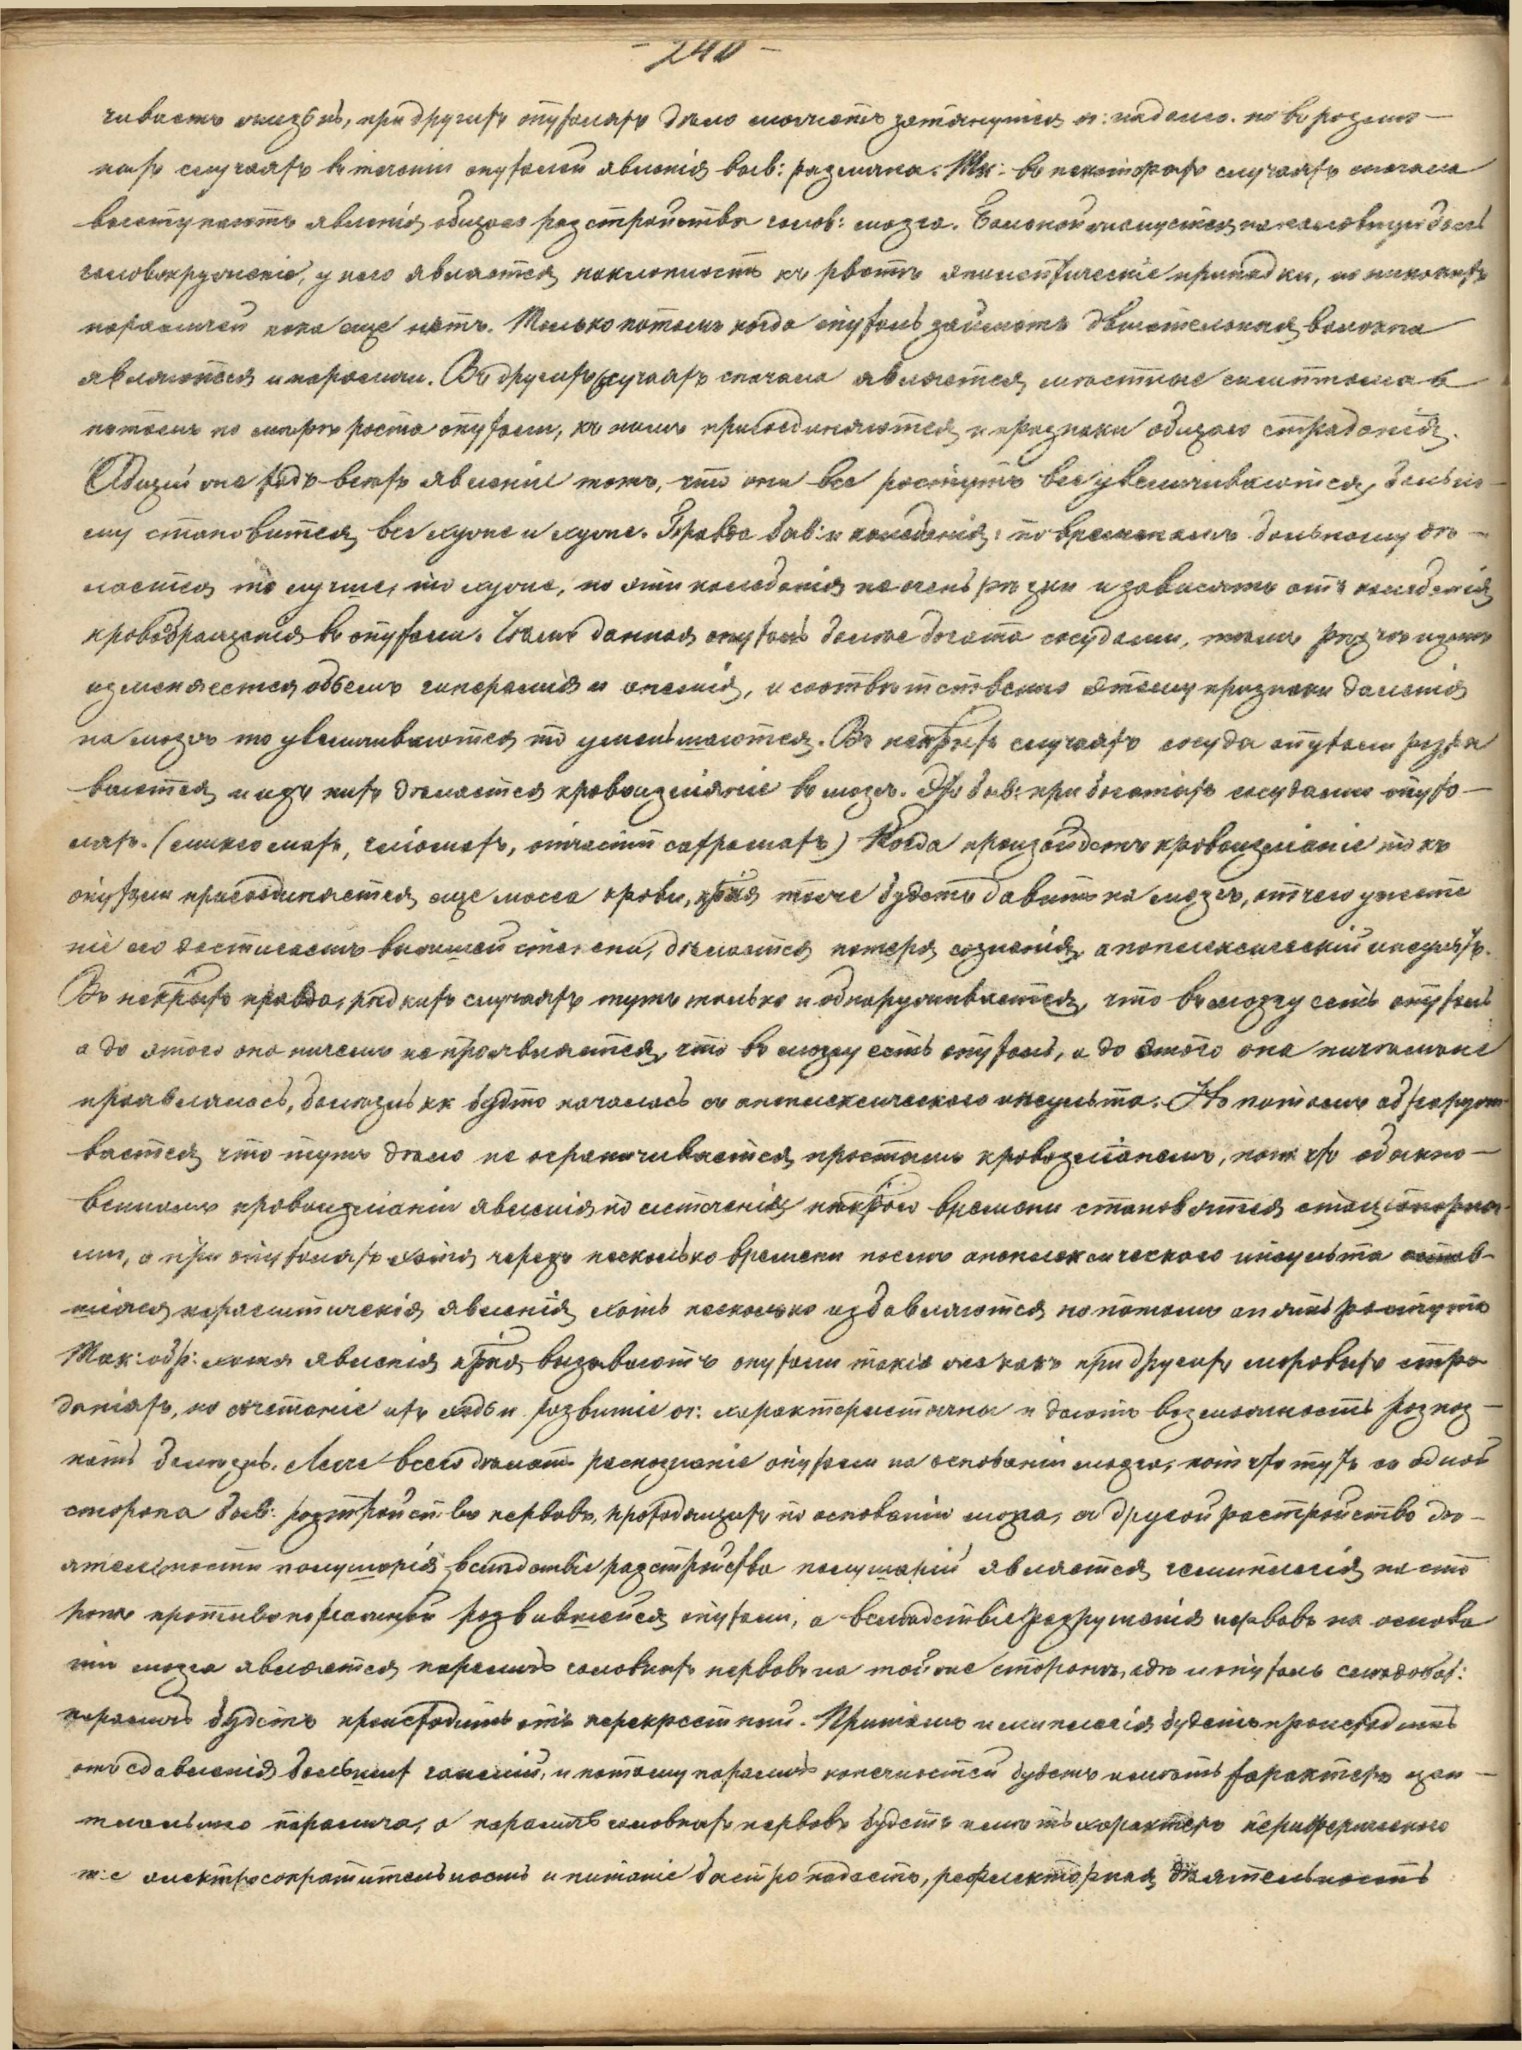 - 240 -
чиваетъ жизнь, при другихъ опухоляхъ дѣло можетъ затянутся оч: надолго. но въ различ-
ныхъ случаяхъ въ теченіи опухолей явленія быв: различна. Тк: въ некоторыхъ случаяхъ сначала
выступаютъ явленія общаго разстройства голов: мозга. Больной жалуется на головную боль
головокруженіе, у него является наклонность къ рвотѣ эпилептическіе припадки, но никакихъ
параличей пока еще нѣтъ. Только потомъ когда опухоль займетъ двигательныя волокна
являются и параличи. Въ другихъ случаяхъ сначала являются мѣстные симптомы а
потомъ по мѣрѣ роста опухоли, къ нимъ присоединяются и признаки общаго страданія.
Общій же ходъ всехъ явленіе тотъ, что они все ростутъ все увеличиваются, больно-
му становится все хуже и хуже. Правда быв: и колебанія: по временамъ больному дѣ-
лается то лучше, то хуже, но эти колебанія не очень рѣзки и зависятъ отъ колебанія
кровобращенія въ опухоли. Чѣмъ данная опухоль болѣе богата сосудами, тѣмъ рѣзче идетъ
изменяется объемъ гиперемія и анемія, и соотвѣтственно этому признаки давленія
на мозгъ то увеличиваются то уменьшаются. Въ некрыхъ случаяхъ сосуда опухоли разры
ваются и изъ нихъ дѣлается кровоизліяніе въ мозгъ. Это быв: при богатыхъ сосудами опухо-
ляхъ. (миксомахъ, гліомахъ, отчасти саркомахъ) Когда произойдетъ кровоизліаніе то къ
опухоли присоединяется еще масса крови, края тоже будетъ давить на мозгъ, отчего угнете
ніе его достигаетъ высшей степени, дѣлается потеря сознанія, апоплексическій инсультъ.
Въ некрыхъ правда, рѣдкихъ случаяхъ тутъ только и обнаруживается, что въ мозгу есть опухоль
а до этого она ничемъ не проявляется, что въ мозгу есть опухоль, а до этого она ничемъ не
проявлялась, болѣзнь кк будто началась съ апоплексическаго инсульта. Но потомъ обнаружи
вается что тутъ дѣло не ограничивается простымъ кровоизліаніемъ, пот: что обыкно-
венномъ кровоизліаніи явленія по истеченія некрого времени становятся стаціонарны-
ми, а при опухоляхъ хотя черезъ несколько времени послѣ апоплексическаго инсульта остав-
шіяся паралитическія явленія хоть несколько избавляются но потомъ опять ростутъ
Так: обр: хотя явленія крыя вызываютъ опухоли такіе же какъ при другихъ мозговыхъ стра-
даніяхъ, но сочетаніе ихъ ходъ и развитіе оч: характеристичны и даютъ возможность распоз-
нать болѣзнь. Легче всего дѣлать распознаніе опухоли на основаніи мозга, пот: что тутъ съ одной
сторона быв: разтройство нервовъ, проходящихъ по основанію мозга, съ другой растройство дѣ-
ятельности полушарія, вслѣдствіе разстройства полушарій является гемиплегія на сто
ронѣ противоположной развившейся опухоли, а вслѣдствіе разрушенія нервовъ на основа
ніи мозга является параличъ головныхъ нервовъ на той же сторонѣ, гдѣ и опухоль следоват:
параличъ будетъ происходить отъ перекрестный. Притомъ гемиплегія будетъ происходить
отъ сдавленія большихъ ганглій, и потому параличъ конечностей будетъ иметь характеръ цен-
тральнаго паралича, а параличъ головныхъ нервовъ будетъ иметь характеръ периферическаго
т: е электросократительность и питаніе быстро падаетъ, рефлекторная дѣятельность